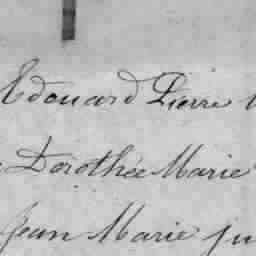 Edouard Pierre
Dorothée Marie
Jean Marie